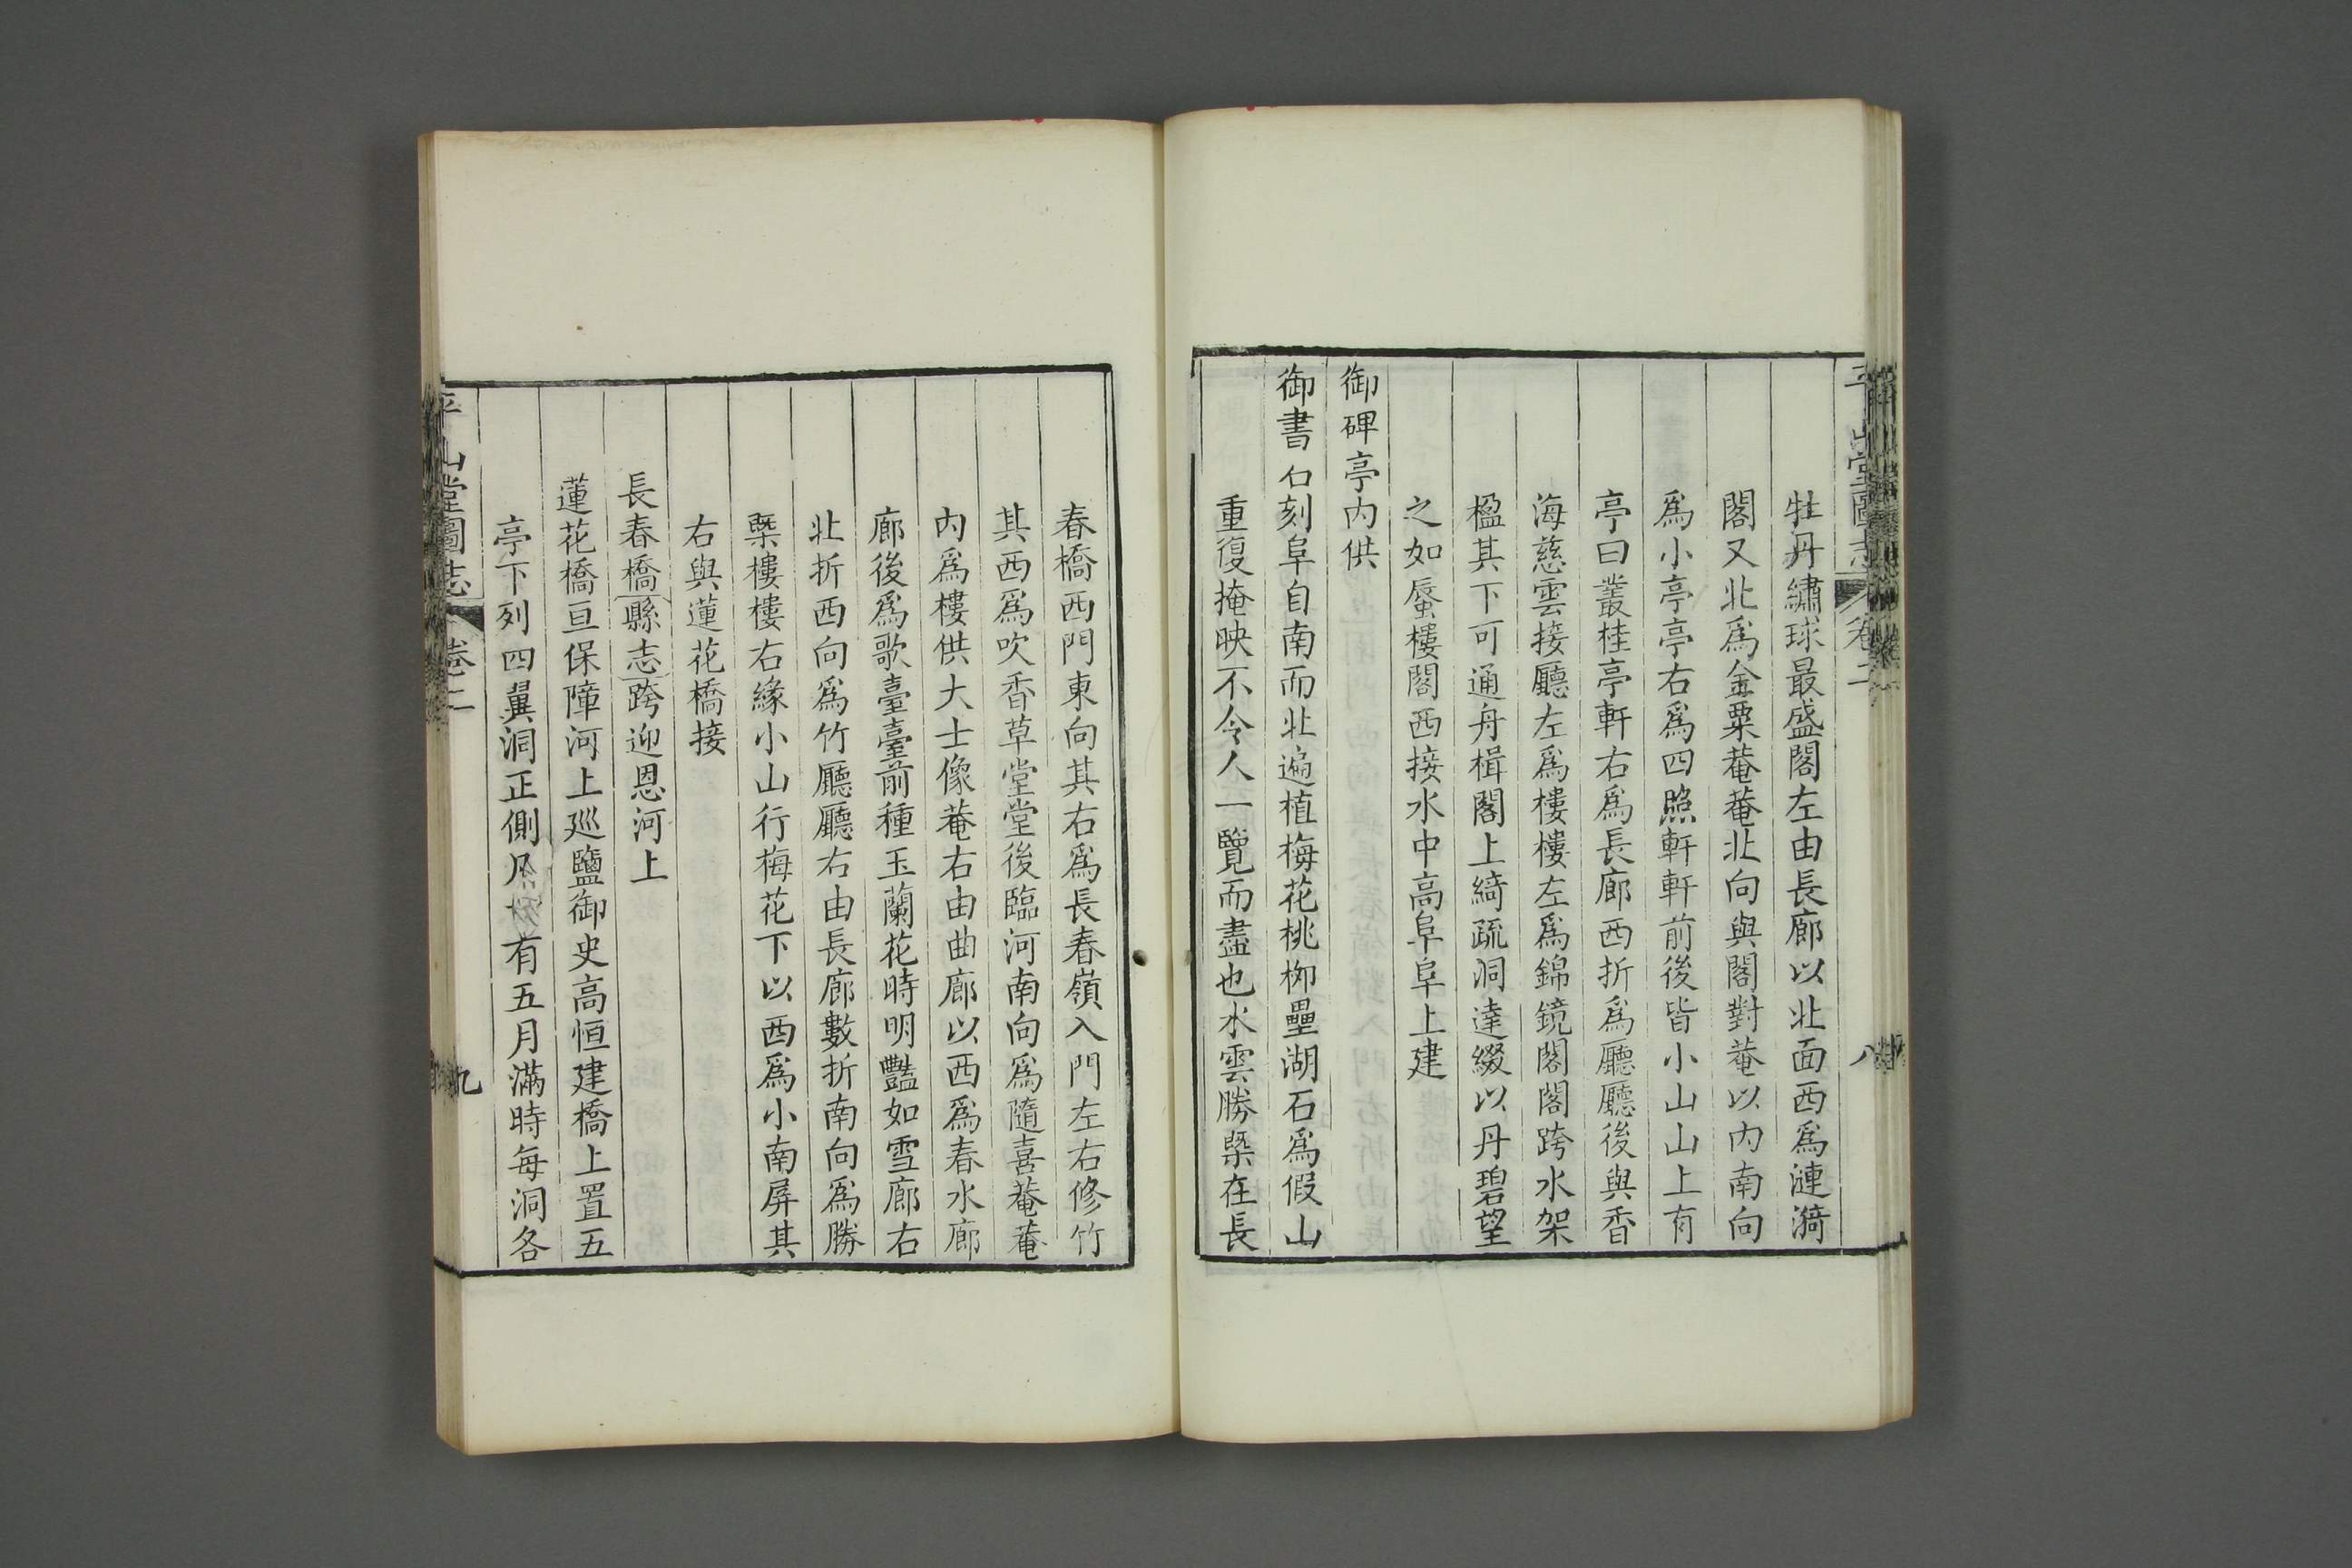 平山堂圖志 卷二 八
牡丹繡球最盛閣左由長廊以北面西爲漣漪
閣又北爲金粟菴菴北向與閣對菴以内南向
爲小亭亭右爲四照軒軒前後皆小山山上有
亭曰叢桂亭軒右爲長廊西折爲廳廳後與香
海慈雲接廳左爲樓樓左爲錦鏡閣閣跨水架
楹其下可通舟楫閣上綺疏洞達綴以丹碧望
之如蜃樓閣西接水中高阜阜上建
御碑亭内供
御書石刻阜自南而北遍植梅花桃柳壘湖石爲假山
重復掩映不令人一覽而盡也水雲勝槩在長
春橋西門東向其右爲長春嶺入門左右修竹
其西爲吹香草堂堂後臨河南向爲隨喜菴菴
内爲樓供大士像菴右由曲廊以西爲春水廊
廊後爲歌臺臺前種玉蘭花時明豔如雪廊右
北折西向爲竹廳廳右由長廊數折南向爲勝
槩樓樓右緣小山行梅花下以西爲小南屏其
右與蓮花橋接
長春橋縣志跨迎恩河上
蓮花橋亘保障河上巡鹽御史高恒建橋上置五
亭下列四翼洞正側凡十有五月滿時每洞各
平山堂圖志 卷二 九